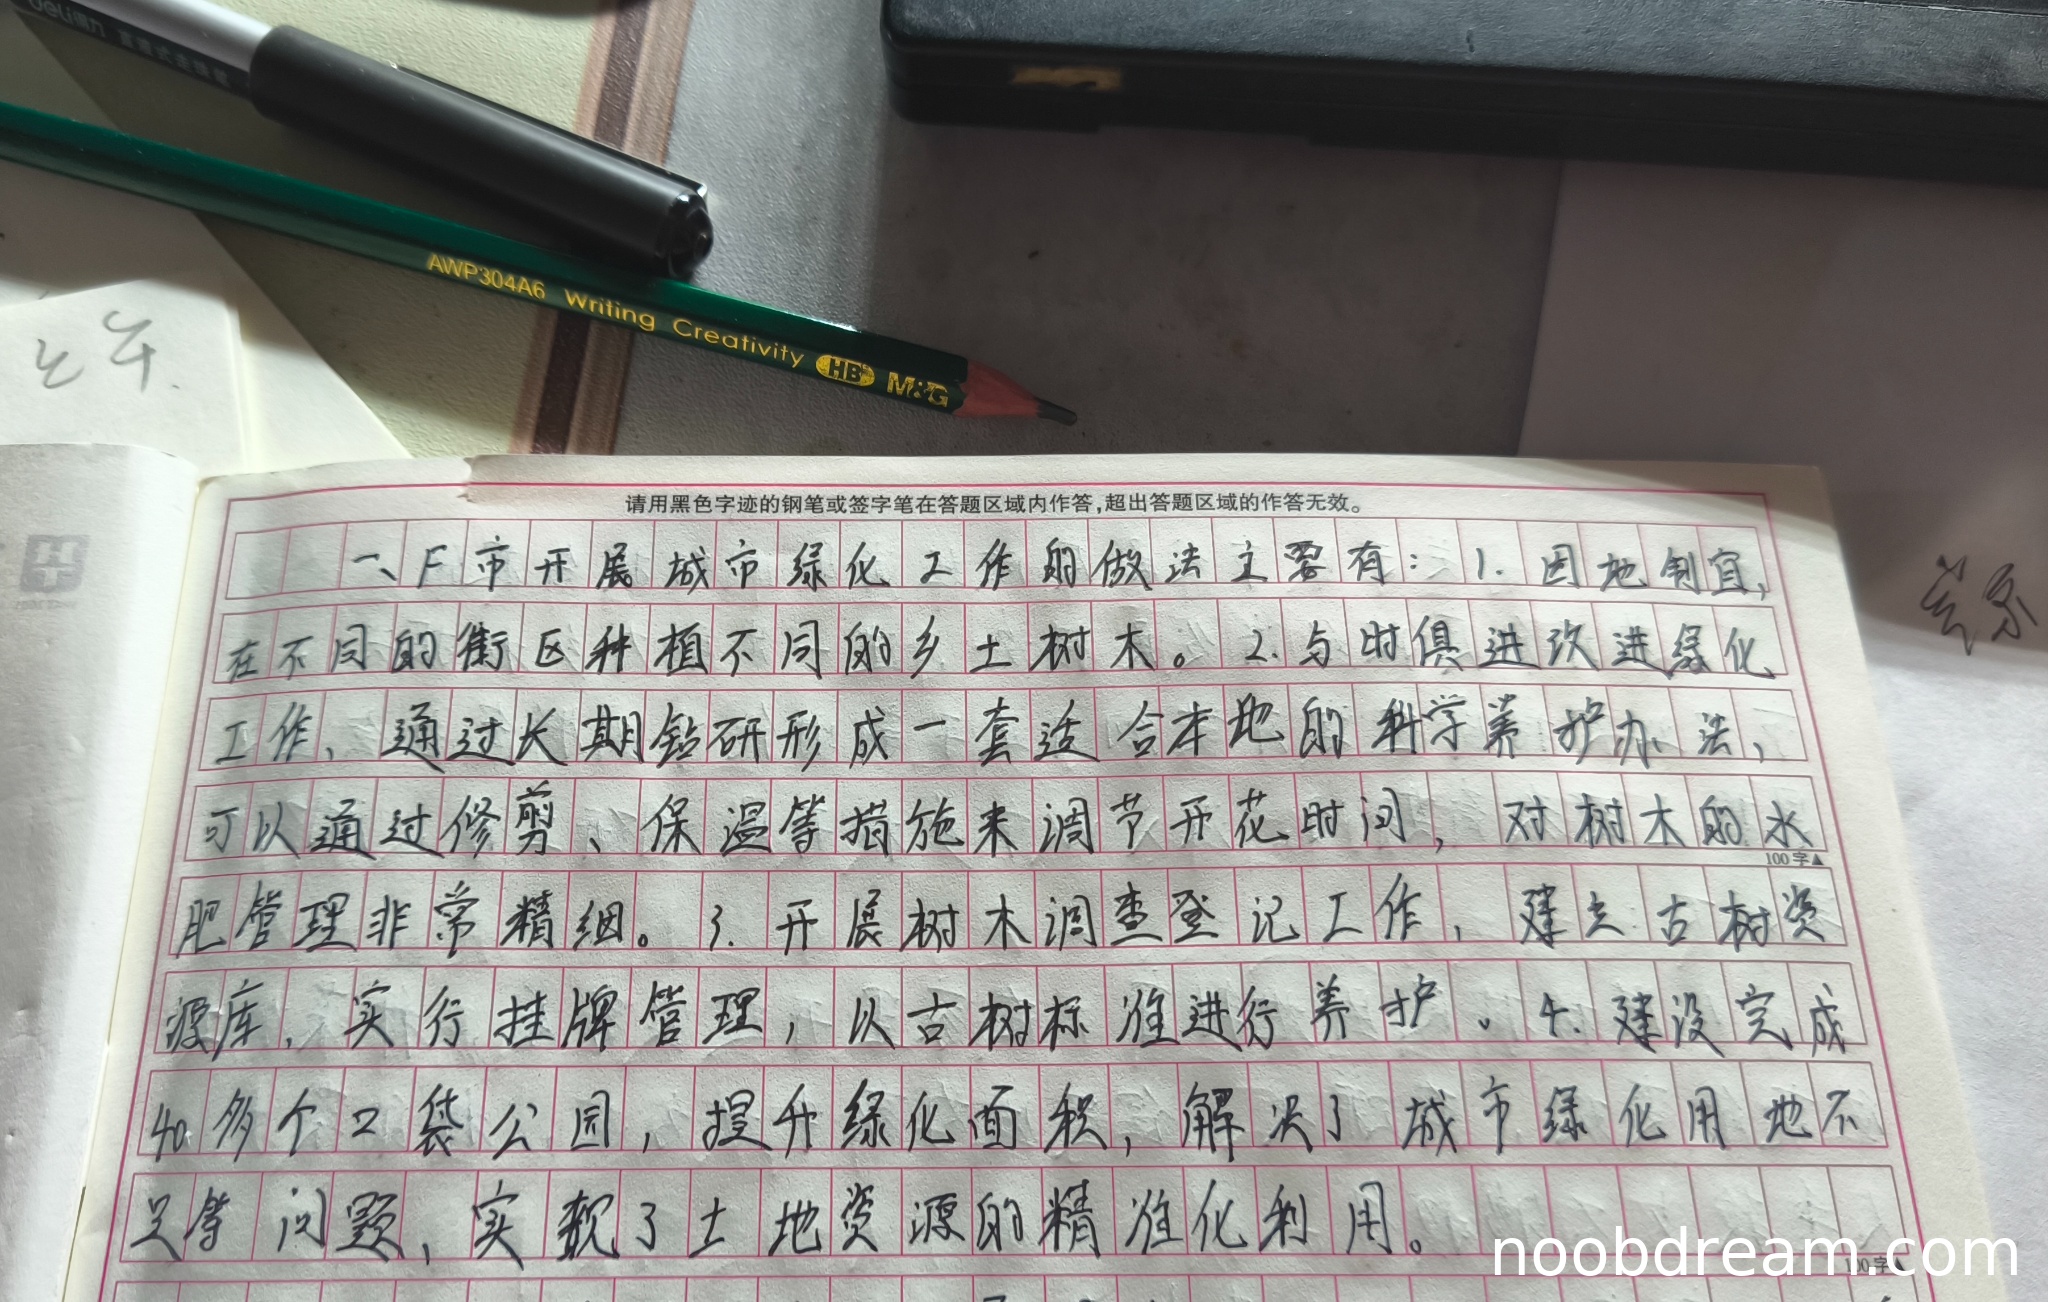 deli得力
AWP304A6 Writing Creativity HB M&G
上午.
请用黑色字迹的钢笔或签字笔在答题区域内作答,超出答题区域的作答无效。
一、F市开展城市绿化工作的做法主要有：1.因地制宜，
在不同的街区种植不同的乡土树木。2.与时俱进改进绿化
工作，通过长期钻研形成一套适合本地的科学养护办法，
可以通过修剪、保温等措施来调节开花时间，对树木的水
100字▲
肥管理非常精细。3.开展树木调查登记工作，建立古树资
源库，实行挂牌管理，以古树标准进行养护。4.建设完成
40多个口袋公园，提升绿化面积，解决了城市绿化用地不
足等问题，实现了土地资源的精准化利用。
noobdream.com